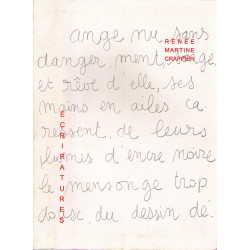 ange nu sans
danger, ment, songe,
et rêve d'elle, ses
mains en ailes ca.
ressent, de leurs
plumes d'encre noire
le mensonge trop
doux, du dessin dé.
RENÉE
MARTINE
CRAPPIER
ÉCRIRATURES